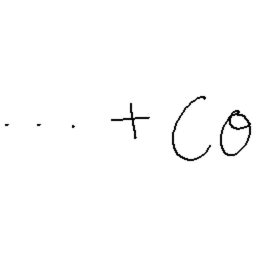 ... + CO